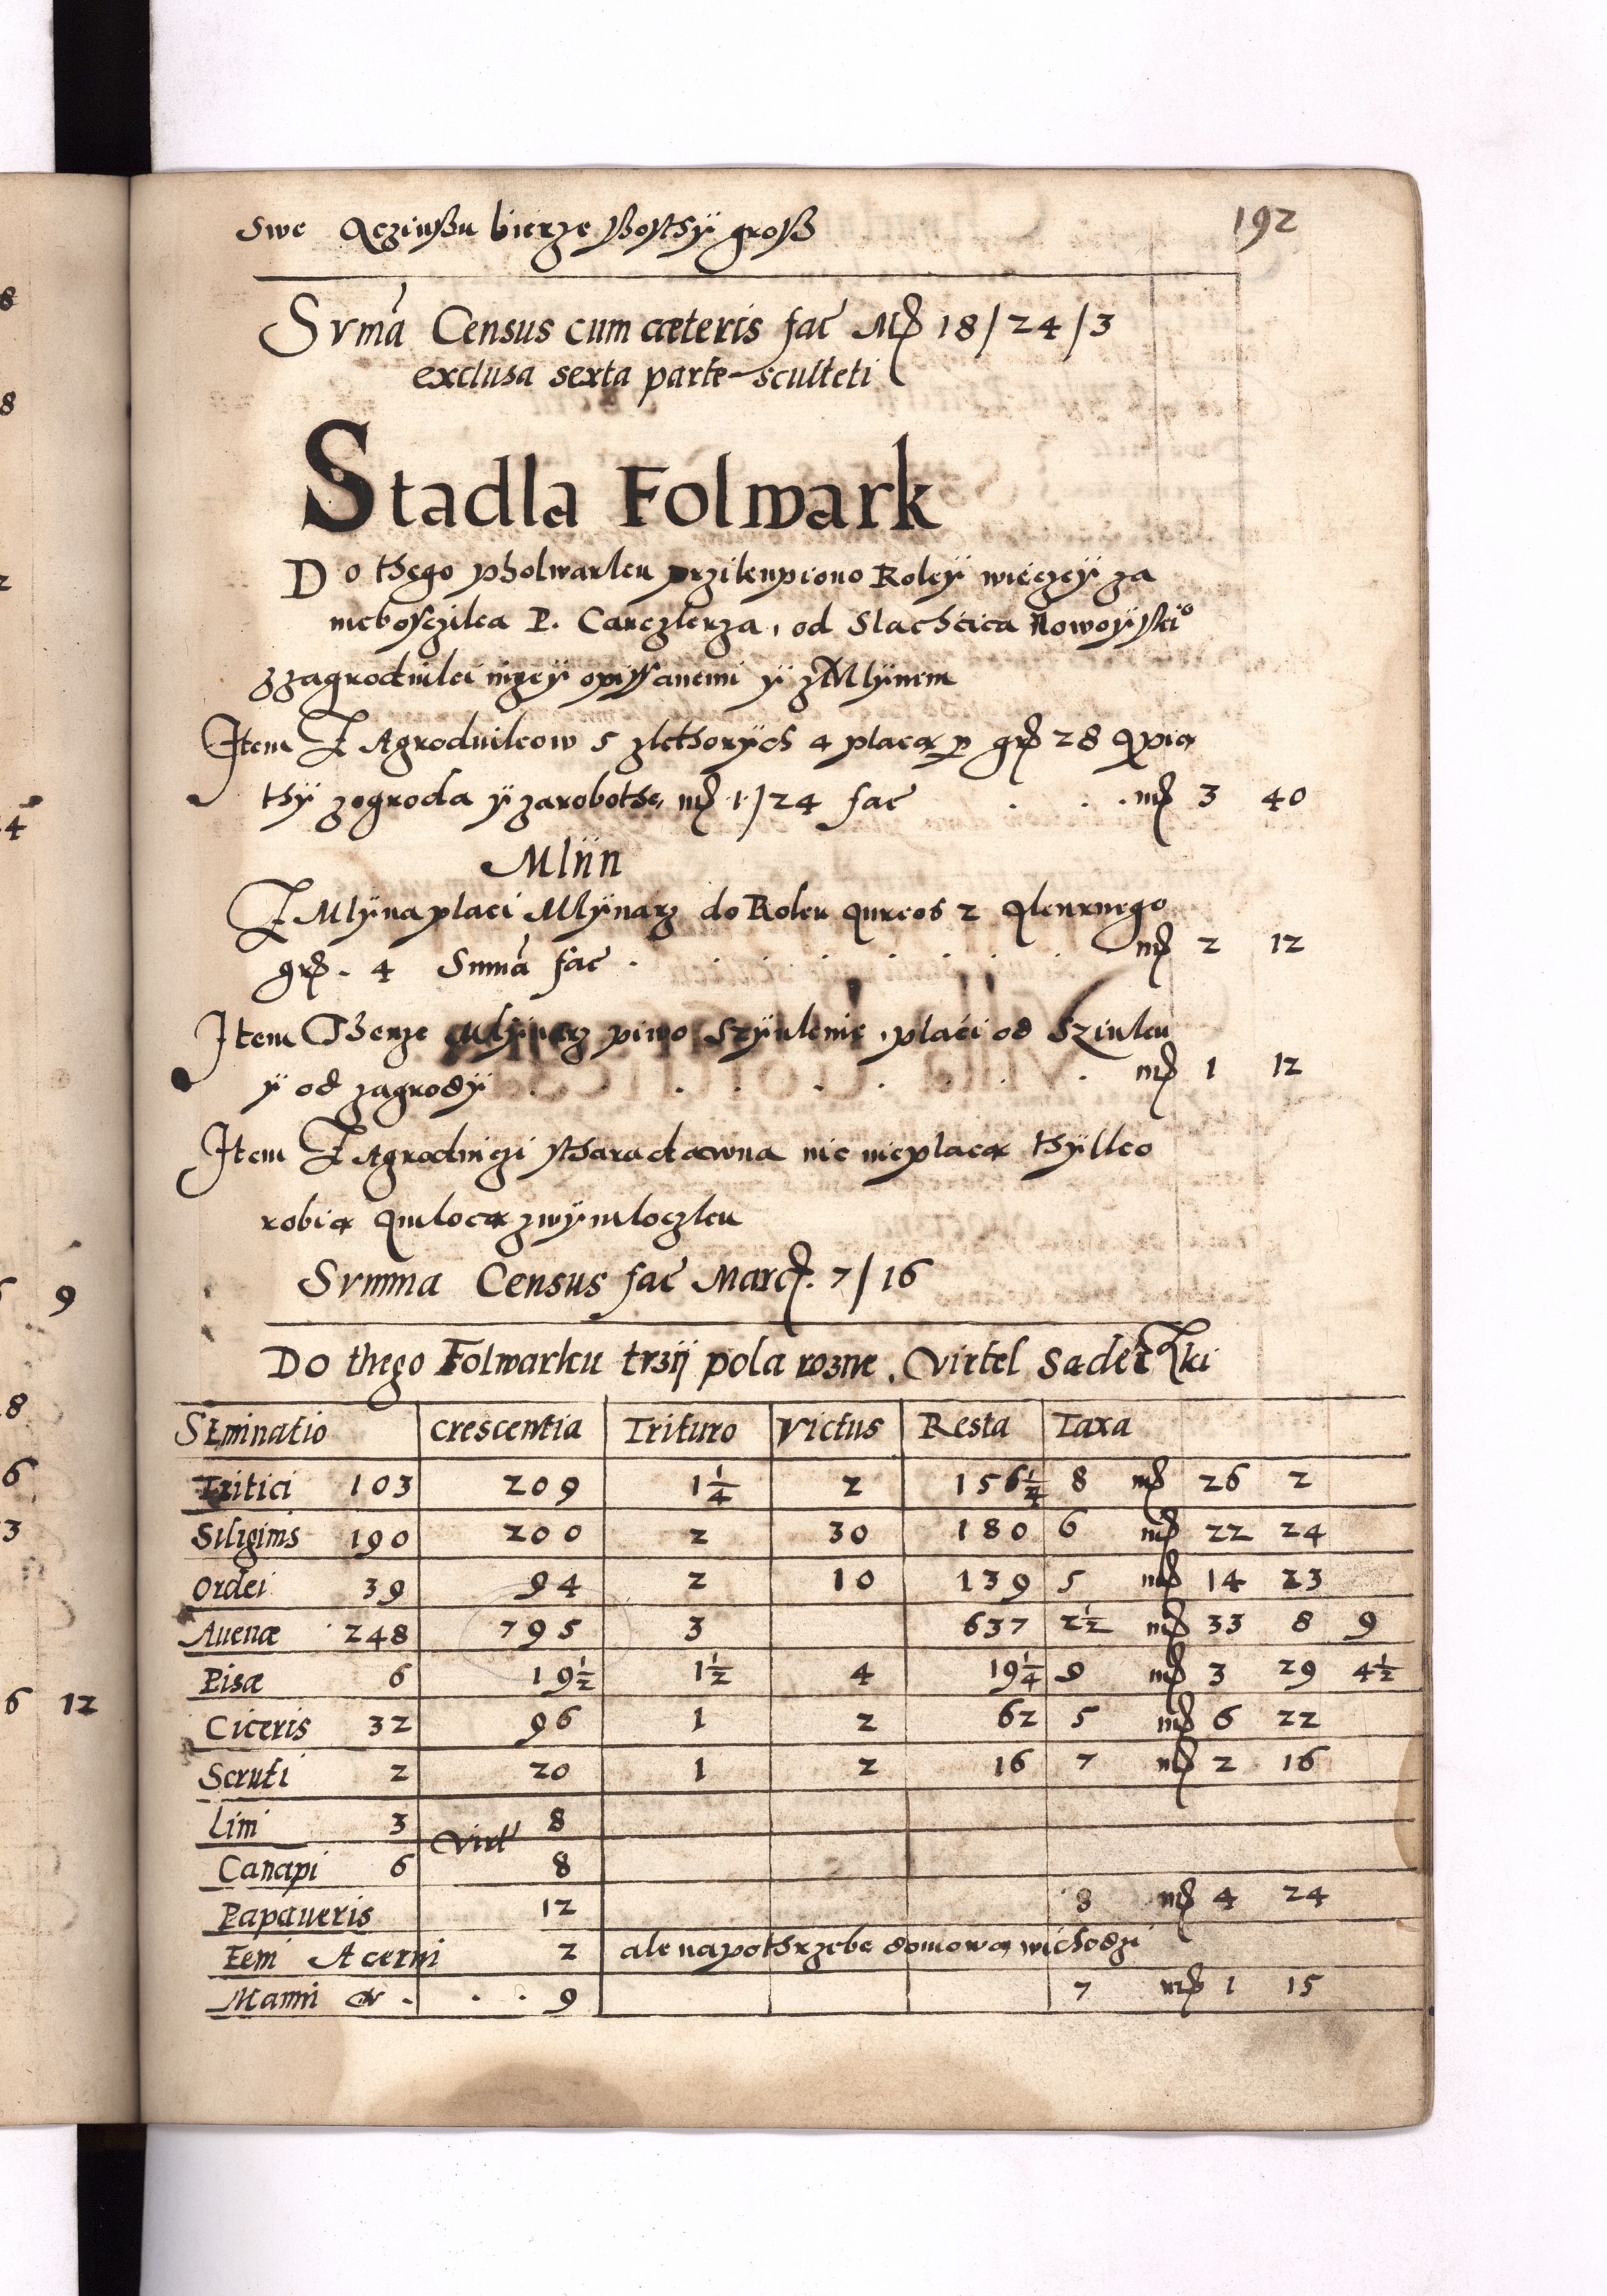 192
swe Aczinßu bierze ßosthÿ groß
Svmā Census cum cæteris fac̄ Mȓ 18/24/3
exclusa sexta parte sculteti
Stadla Folwark
Do thego pholwarku przikupiono Roleÿ wieczeÿ za
nieboszczika P. Canczlerza, od Slachcica
z zagrodniki nizeÿ opissanemi ÿ z Mlÿnem
Item Zagrodnikow 5 z kthorÿch 4 placą p gr 28 A pią
thÿ zogroda ÿ zarobothę mȓ 1/24 fac̄ . . . mȓ 3 40
Mlÿn
Z Mlÿna placi Mlÿnarz do Roku Aureos 2
gr. 4 Sum̄a fac̄ . . . . . . . mȓ 2 12
Item Thenze Mlÿnarz piwo szÿnkuie, placi od Szinku
ÿ od zagrodÿ . . . . . . mȓ 1 12
Item Zagrodniczi sztharadawna nic nie placą thÿlko
robią A mlocą z wÿmloczku
Svmma Census fac̄ Marc. 7/16
Do thego Folwarku trzÿ pola rozne. Virtel Sadeczki
Seminatio Crescentia Trituro Victus Resta Taxa
Tritici 103 209 1¼ 2 156¼ 8 mȓ 26 2
Siliginis 190 200 2 30 180 6 mȓ 22 24
Ordei 39 94 2 10 139 5 mȓ 14 23
Auenæ 248 795 3 637 2½ mȓ 33 8 9
Pisæ 6 19½ 1½ 4 19¼ 9 mȓ 3 29 4½
Ciceris 32 96 1 2 62 5 mȓ 6 22
Scruti 2 20 1 2 16 7 mȓ 2 16
Lini 3 8
Virt
Canapi 6 8
Papaueris 12 8 mȓ 4 24
Feni Acerui 2 ale na pothrzebe domową wichodzi
9 7 mȓ 1 15
8
8
2
4
9
8
6
3
6 12